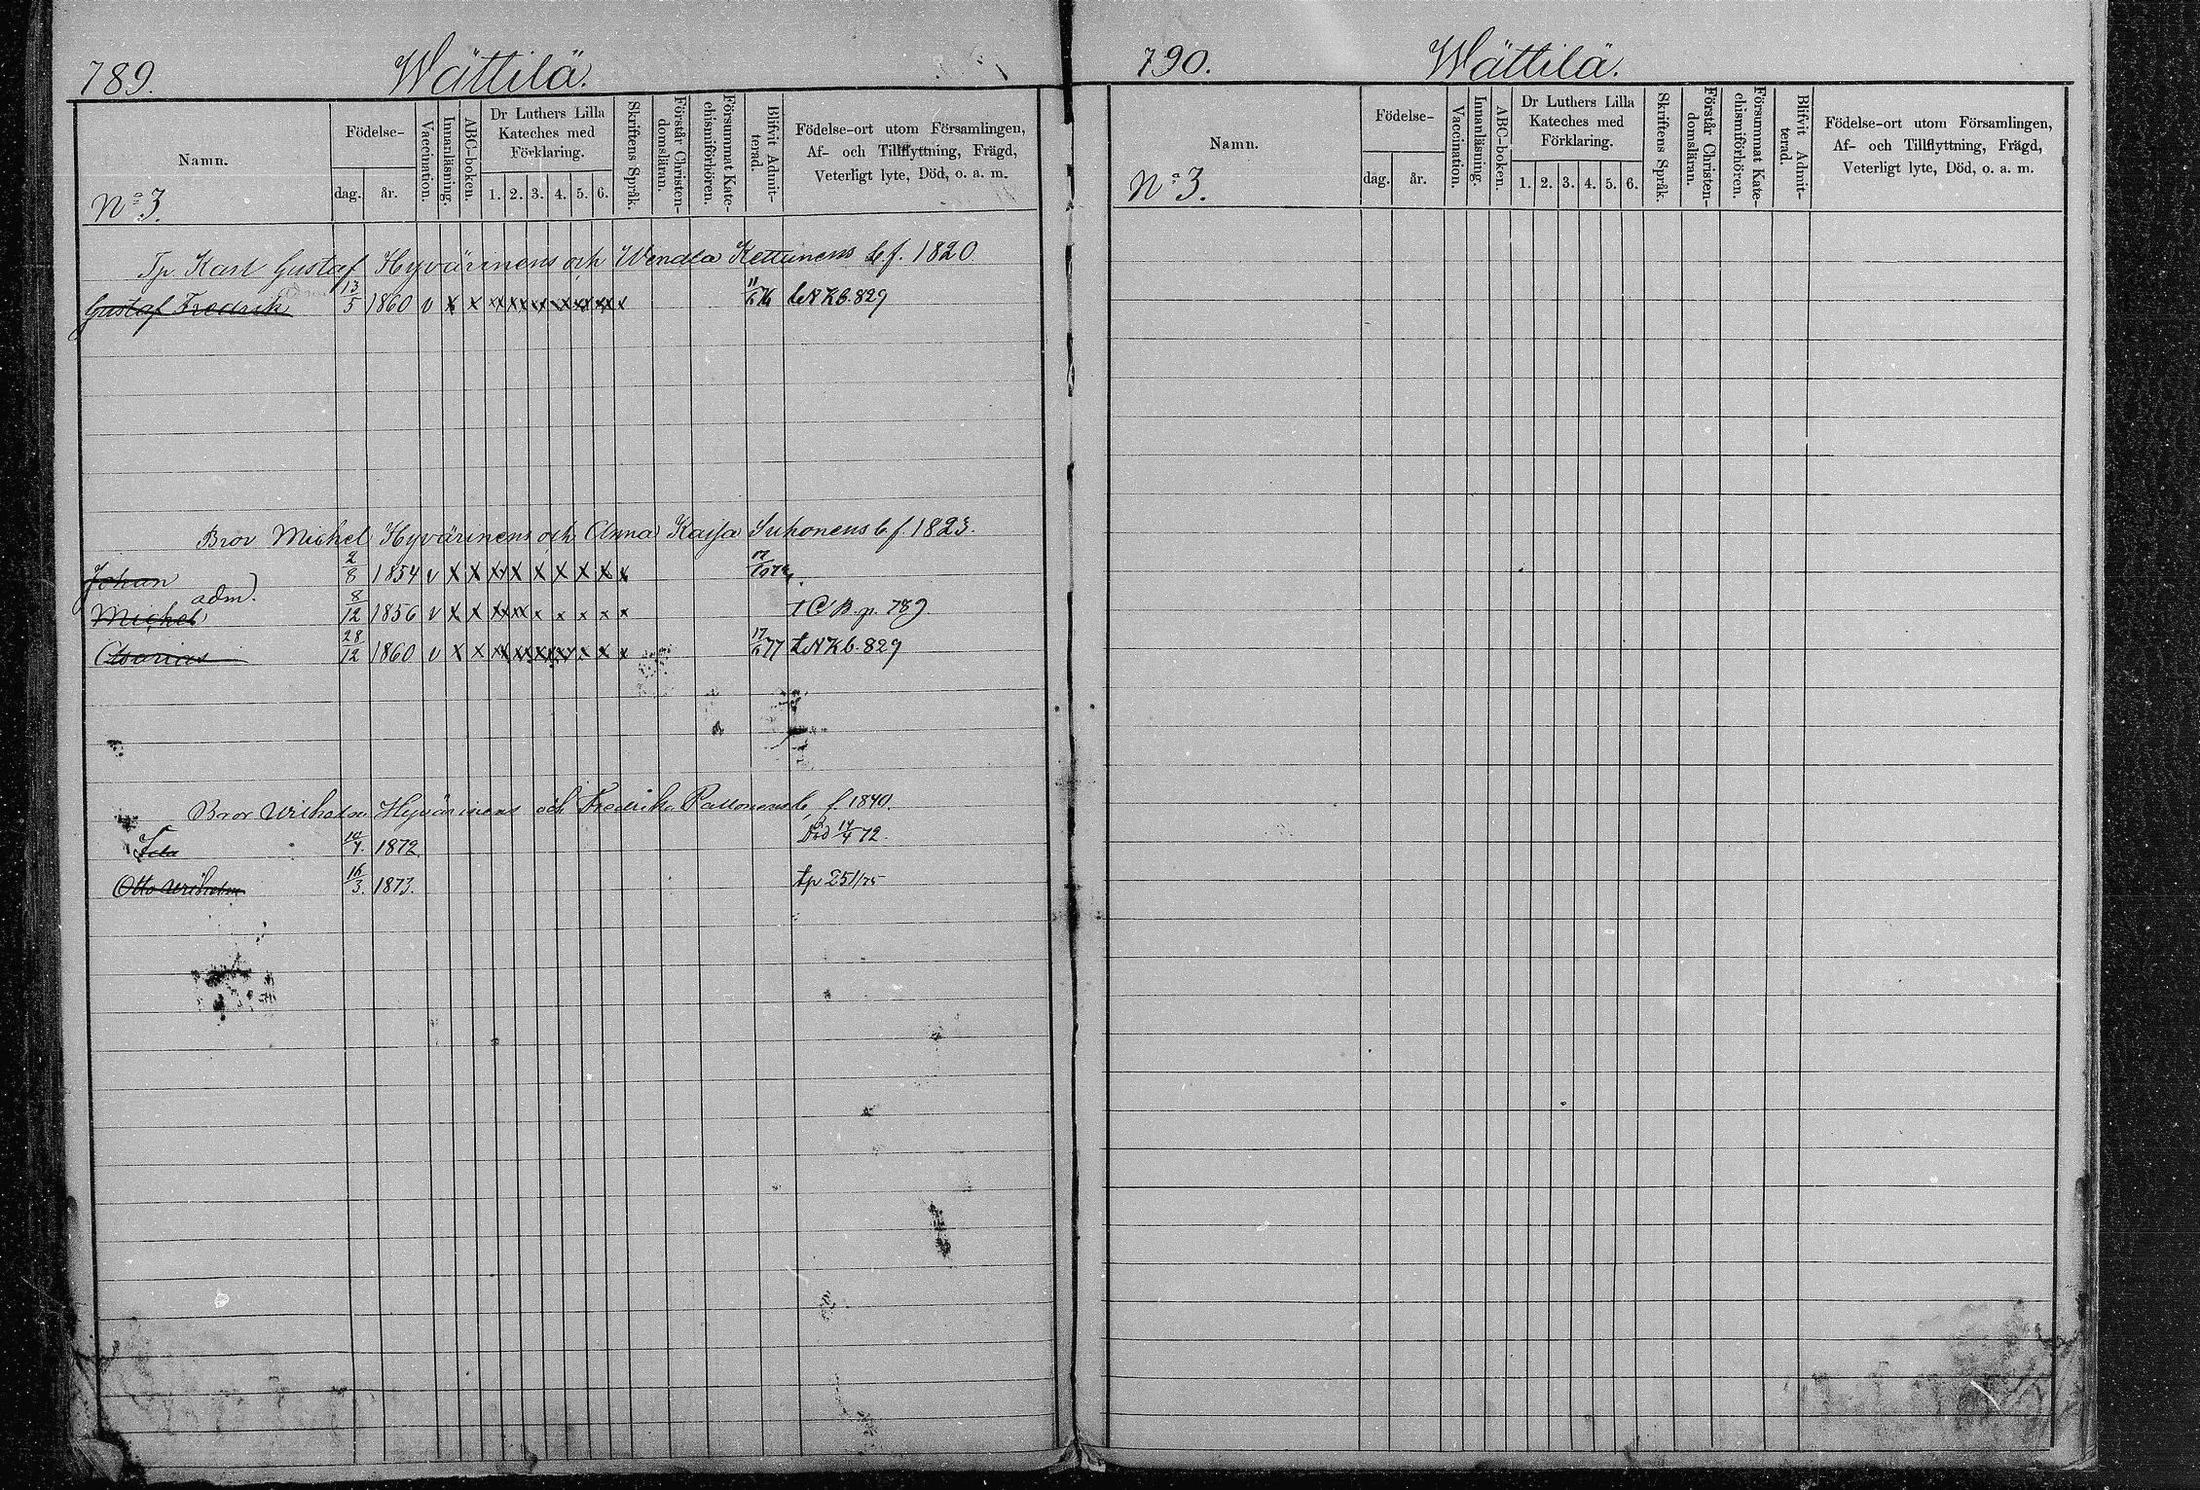 789. Wättilä.
Namn.
No 3.
Födelse-
dag. år.
Vaccination.
Innanläsning.
ABC-boken.
Dr Luthers Lilla
Kateches med
Förklaring.
1. 2. 3. 4. 5. 6.
Skriftens Språk.
Förstår Christen-
domsläran.
Försummat Kate-
chismiförhören.
Blifvit Admit-
terad.
Födelse-ort utom Församlingen,
Af- och Tillflyttning, Frägd,
Veterligt lyte, Död, o. a. m.
Tp. Karl Gustaf Hyvärinens och Wendla Kettunens b. f. 1820
Gustaf Fredrik 13/5 1860 v x x xx xx xx xx xx xx x N Kb. 829
Bror Michel Hyvärinens och Anna Kajsa Suhonens b f. 1823.
Johan 2/8 1854 v x x xx x x x x x x
adm.
Michel 8/12 1856 v x x xx xx x x x x x p. 789
28/12 1860 v x x xx xx xx xx x x x 17/6 77 N Kb. 829
Bror Wilhelm Hyvärinens och Fredrika b. f 1840.
1872. Död 14/4 72.
Otto Wilhelm 16/3. 1873. tp 251/75
790. Wättilä.
Namn.
No 3.
Födelse-
dag. år.
Vaccination.
Innanläsning.
ABC-boken.
Dr Luthers Lilla
Kateches med
Förklaring.
1. 2. 3. 4. 5. 6.
Skriftens Språk.
Förstår Christen-
domsläran.
Försummat Kate-
chismiförhören.
Blifvit Admit-
terad.
Födelse-ort utom Församlingen,
Af- och Tillflyttning, Frägd,
Veterligt lyte, Död, o. a. m.